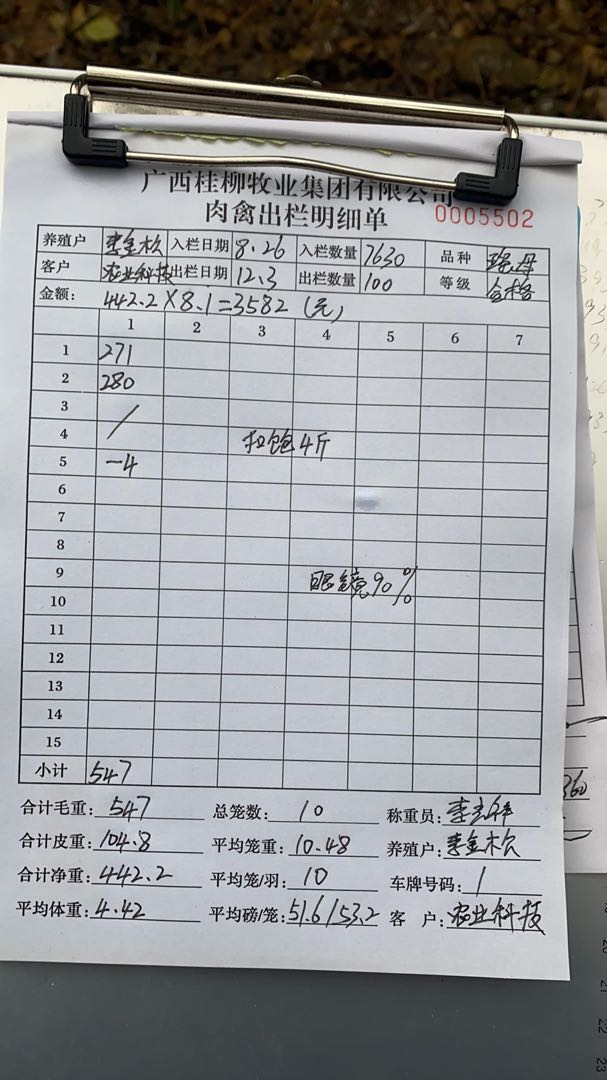 广西桂柳牧业集团有限公司
肉禽出栏明细单 0005502
养殖户 李金松 入栏日期 8.26 入栏数量 7630 品种
客户 农业科技 出栏日期 12.3 出栏数量 100 等级 合格
金额: 442.2×8.1=3582(元)
1 2 3 4 5 6 7
1 271
2 280
3 /
4 扣饱4斤
5 -4
6
7
8
9 眼镜90%
10
11
12
13
14
15
小计 547
合计毛重: 547 总笼数: 10 称重员:
合计皮重: 104.8 平均笼重: 10.48 养殖户: 李金松
合计净重: 442.2 平均笼/羽: 10 车牌号码: /
平均体重: 4.42 平均磅/笼: 51.6/53.2 客户: 农业科技
360
20
21
22
23